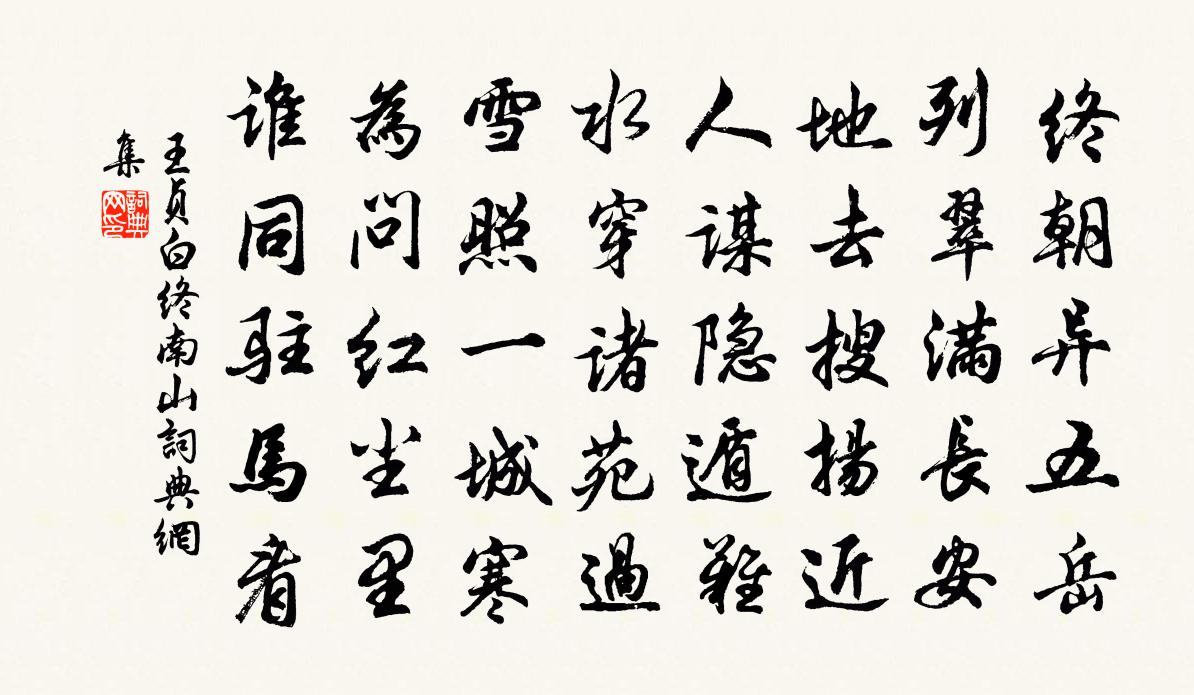 终朝异五岳
列翠满長安
地去搜揚近
人谋隐遁難
水穿诸苑過
雪照一城寒
為问红尘里
谁同驻馬看
王贞白终南山詞典網
集
詞典网印